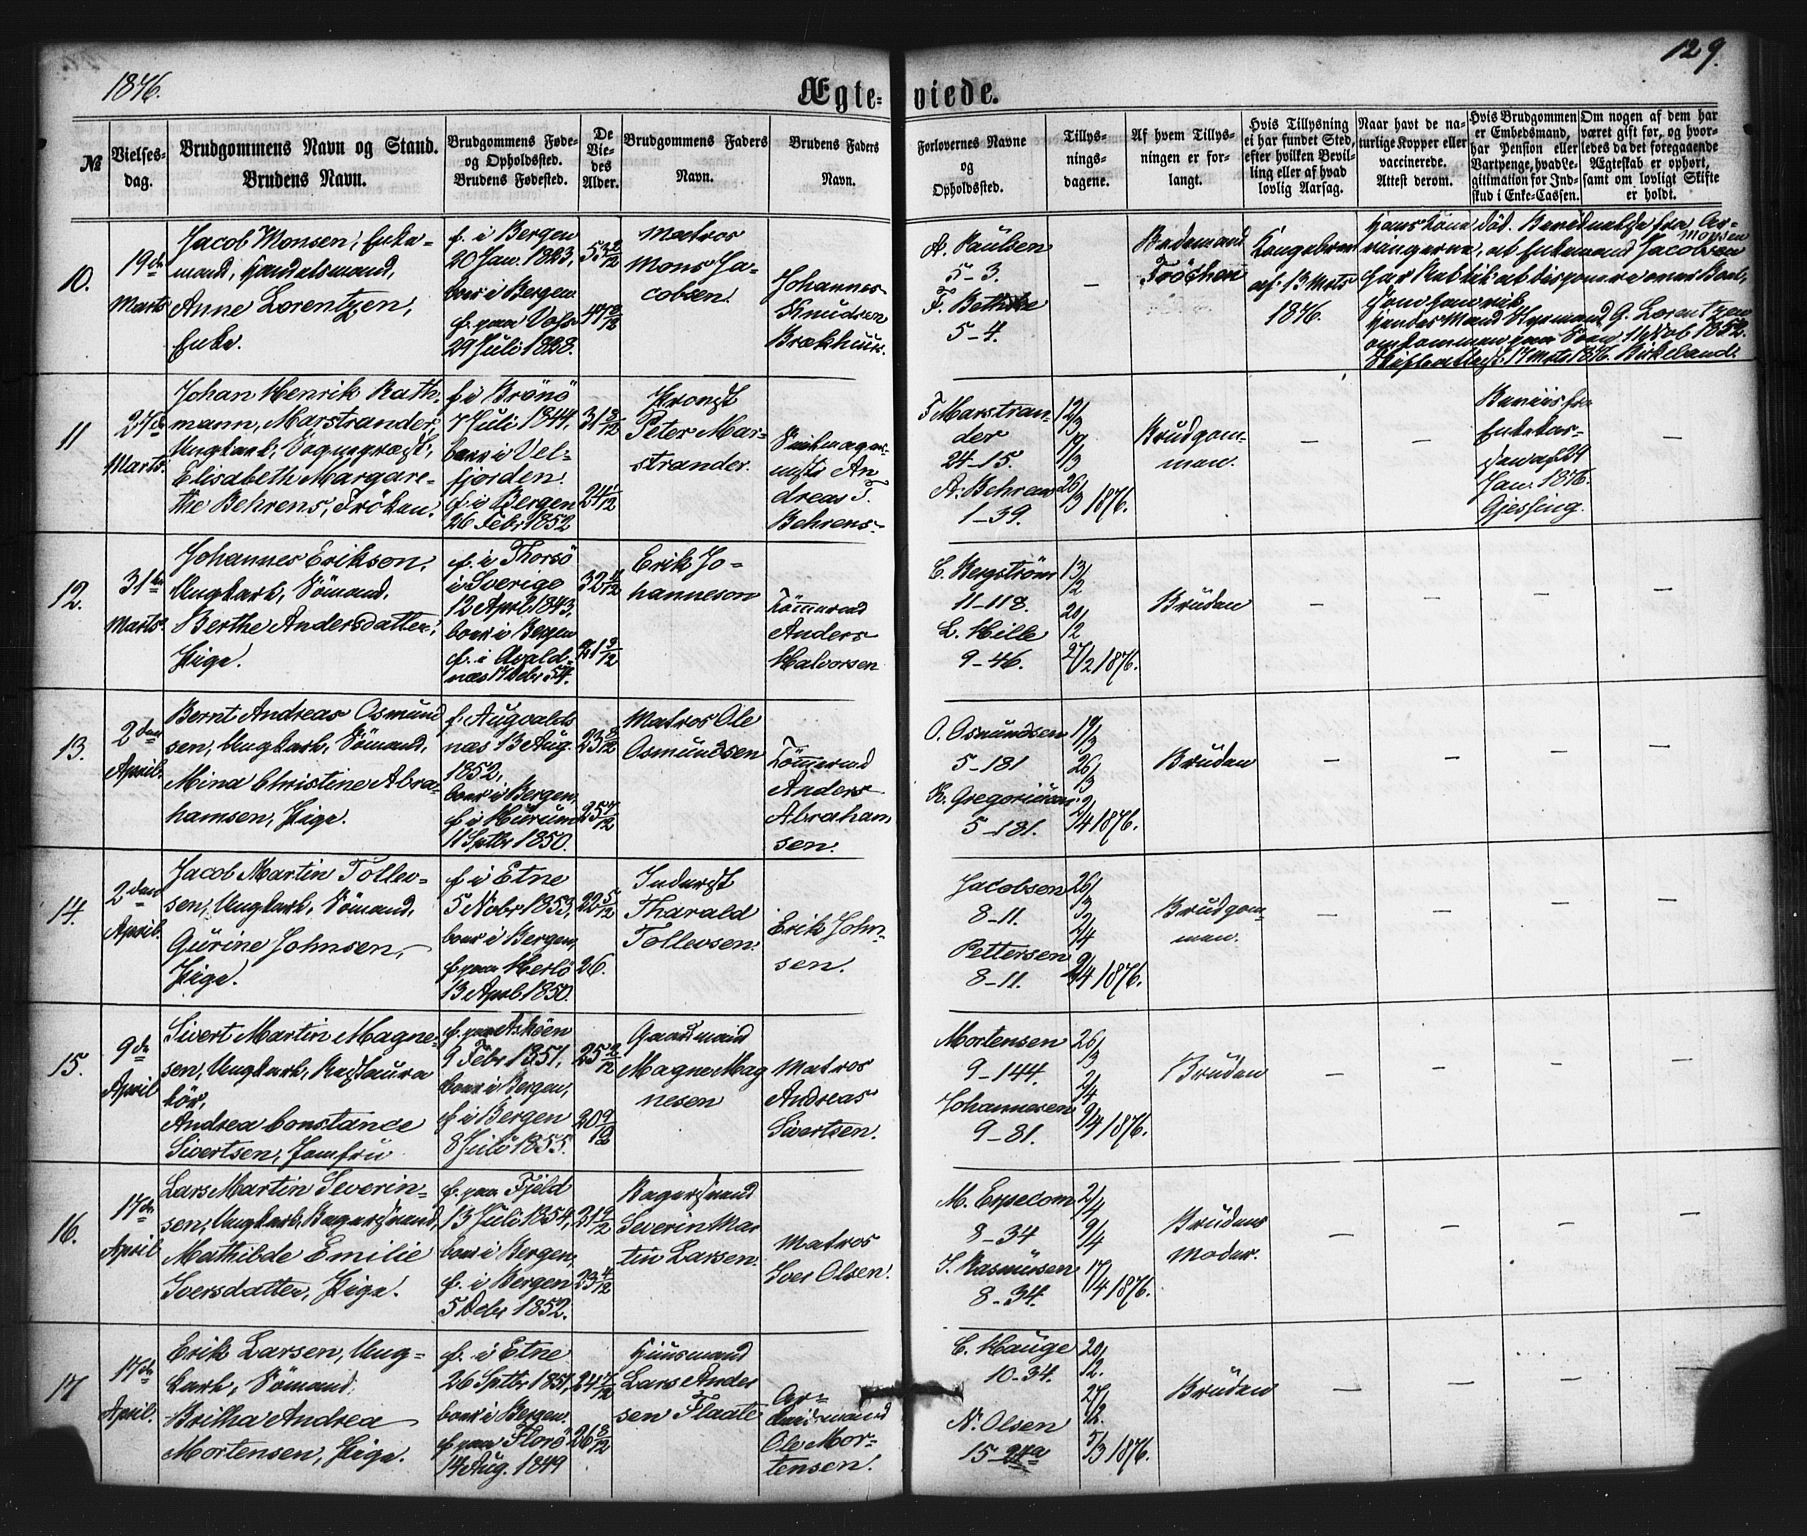 1876.
129.
Ægte-viede.
№
Vielses-
dag.
Brudgommens Navn og Stand.
Brudens Navn.
Brudgommens Føde-
og Opholdssted.
Brudens Fødested.
De
Vie-
des
Alder.
Brudgommens Faders
Navn.
Brudens Faders
Navn.
Forlovernes Navne
og
Opholdssted.
Tillys-
nings-
dagene.
Af hvem Tillys-
ningen er for-
langt.
Hvis Tillysning
ei har fundet Sted,
efter hvilken Bevil-
ling eller af hvad
lovlig Aarsag.
Naar havt de na-
turlige Kopper eller
vaccinerede.
Attest derom.
Hvis Brudgommen
er Embedsmand,
har Pension eller
Vartpenge, hvad Le-
gitimation for Ind-
skud i Enke-Cassen.
Om nogen af dem har
været gift før, og hvor-
ledes da det foregaaende
Ægteskab er ophørt,
samt om lovligt Skifte
er holdt.
10.
19de
Marts
Jacob Monsen, Enke-
mand, Handelsmand,
Anne Lorentzen,
Enke.
f. i Bergen
20 Jan. 1823,
boer i Bergen.
f. paa Voss
29 Juli 1828.
53 2/12
47 8/12
Matros
Mons Ja-
cobsen.
Johannes
Knudsen
Brækhuus.
A. Pauben
5-3.
F.
5-4.
–
Brudemand
Kongebrev
af 13 Mrts
1876.
Hans Kone død.
Enkemand Jacobsen
Monsen
Hendes Mand Styrmand G. Lorentzen
omkommen paa Søen
17 Mrts 1876. Birkeland.
11
27de
Marts.
Johan Henrik Rath-
mann, Marstrander,
Ungkarl, Sogneprest,
Elisabeth Margare-
the Behrens, Frøken.
f. i Brønø
7 Juli 1844.
boer i Vel-
fjorden.
f. i Bergen
26 Febr 1852
31 8/12
24 1/12
Provst
Peter Mar-
strander.
Andreas T.
Behrens.
F Marstran-
der
24-15.
A. Behrens
1-39.
12/3
17/3
26/3 1876.
Brudgom-
men.
–
–
Beviis fra
Enkekas-
sen af 29
Jan. 1876.
Gjessing.
–
12.
31te
Marts.
Johannes Erikson,
Ungkarl, Sømand.
Berthe Andersdatter,
Pige.
f. i Thorsø
i Sverige
12 April 1843.
boer i Bergen
f. i Avald-
næs 17 Debr 54.
32 11/12
21 3/12
Erik Jo-
hanneson
Tømmermd
Anders
Halvorsen
C. Bergstrøm
11-118.
L. Hille
9-46.
13/2
20/2
27/2 1876.
Bruden
–
–
–
–
13.
2den
April.
Bernt Andreas Osmund
sen, Ungkarl, Sømand,
Mina Christine Abra-
hamsen, Pige.
f. Augvalds
næs 13 Aug.
1852,
boer i Bergen,
f. i Hurum
11 Sptbr 1850.
23 8/12
25 7/12
Matros Ole
Osmundsen
Tømmermd
Anders
Abraham
sen.
O. Osmundsen
5-181
K. Gregoriusen
5-181.
19/3
26/3
2/4 1876.
Bruden
–
–
–
–
14.
2den
April.
Jacob Martin Tollev-
sen, Ungkarl, Sømand.
Gurine Johnsen,
Pige.
f. i Etne
5 Nobr 1853,
boer i Bergen,
f. paa Herlø
13 April 1850.
22 5/12
26.
Inderst
Tharald
Tollevsen.
Erik John-
sen.
Jacobsen
8-11.
Pettersen
8-11.
26/3
2/4
9/4 1876.
Brudgom-
men.
–
–
–
–
15.
9de
April
Sivert Martin Magne-
sen, Ungkarl, Restaura
tør,
Andrea Constance
Sivertsen, Jomfru
f. paa Askøen
9 Febr 1851,
boer i Bergen,
f. i Bergen
8 Juli 1855.
25 2/12
20 9/12
Gaardmand
Magne Mag
nesen
Matros
Andreas
Sivertsen.
Mortensen
9-144.
Johannesen
9-81.
26/3
2/4
9/4 1876.
Bruden
–
–
–
–
16.
17de
April
Lars Martin Severin-
sen, Ungkarl, Bagersvend,
Mathilde Emilie
Iversdatter, Pige.
f. paa Fjeld
13 Juli 1854,
boer i Bergen,
f. i Bergen
5 Debr 1852.
21 9/12
23 4/12
Bagersvend
Severin Mar
tin Larsen.
Matros
Iver Olsen.
M. Especom
8-34
S. Rasmusen
8-34.
2/4
9/4
17/4 1876.
Brudens
Moder.
–
–
–
–
17
17de
April.
Erik Larsen, Ung-
karl, Sømand.
Brilha Andrea
Mortensen, Pige.
f. i Etne
26 Sptbr 1851,
boer i Bergen.
f. paa Florø
14 Aug. 1849
24 7/12
26 8/12
Huusmand
Lars Ander
sen Flaate.
Ar-
beidsmand
Ole Mor-
tensen.
C. Hauge
10-34.
N. Olsen
20/2.
27/2.
5/3 1876.
Bruden
–
–
–
–